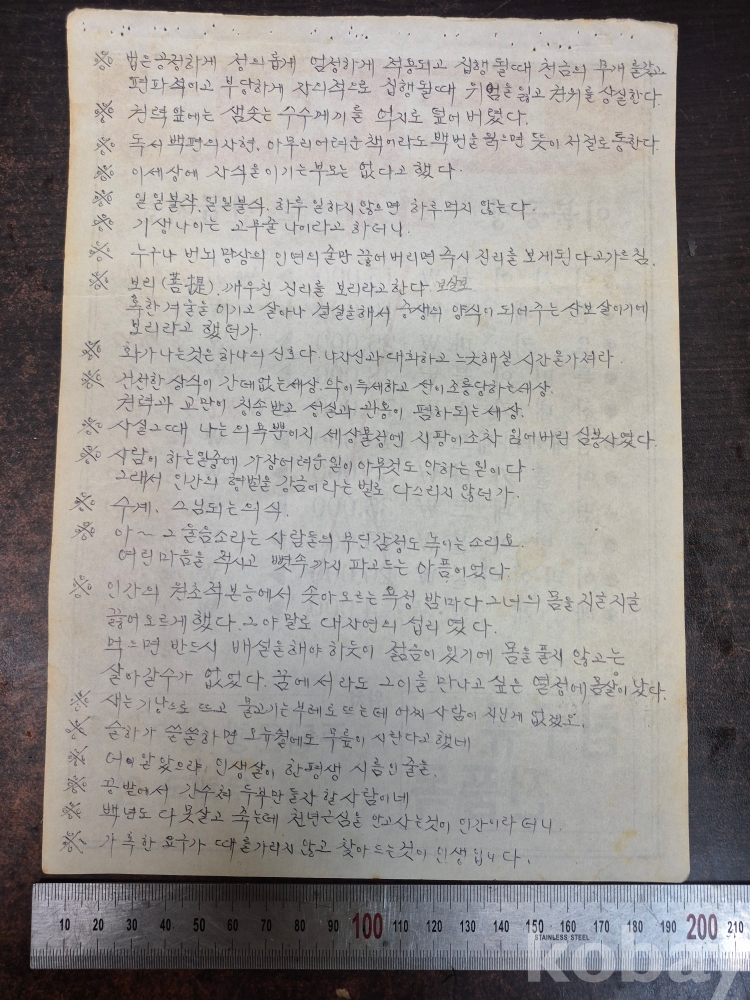 ※ 법은 공정하게 정의롭게 엄정하게 적용되고 집행될때 천금의 무게를 갖고
편파적이고 부당하게 자의적으로 집행될때 위엄을 잃고 권위를 상실한다.
※ 권력 앞에는 샘솟는 수수께끼를 억지로 덮어 버렸다.
※ 독서백편의사현, 아무리어려운책이라도 백번을 읽으면 뜻이 저절로통한다
※ 이세상에 자식을 이기는 부모는 없다고 했다.
※ 일일부작, 일일불식. 하루 일하지 않으면 하루 먹지 않는다.
※ 기생나이는 고무줄 나이라고 하더니.
※ 누구나 번뇌 망상의 인연의 술만 끊어버리면 즉시 진리를 보게된다고 가르침.
※ 보리(菩提). 깨우친 진리를 보리라고한다. 보살로
혹한겨울을 이기고 살아나 결실을해서 중생의 양식이 되어주는 산보살이기에
보리라고 했던가.
※ 화가나는것은 하나의 신호다. 나자신과 대화하고 느긋해질 시간을가져라.
※ 건전한 상식이 간데없는세상. 악이 득세하고 선이조롱당하는세상.
권력과 교만이 칭송받고 성실과 관용이 폄하되는세상.
※ 사실그때 나는 의욕뿐이지 세상물정에 지팡이조차 잃어버린 심봉사였다.
※ 사람이 하는일중에 가장어려운일이 아무것도 안하는 일이다.
그래서 인간의 형벌을 감금이라는 벌로 다스리지 않던가.
※ 수계. 스님되는의식.
※ 아~ 그 울음소리는 사람들의 무딘감정도 녹이는 소리요.
여린마음을 적시고 뼛속까지 파고드는 아픔이었다.
※ 인간의 원초적본능에서 솟아오르는 욕정 밤마다 그녀의 몸을 지글지글
끓어오르게했다. 그야말로 대자연의 섭리였다.
먹으면 반드시 배설을해야 하듯이 젊음이 있기에 몸을풀지 않고는
살아갈수가 없었다. 꿈에서라도 그이를 만나고 싶은 열정에 몸살이 났다.
※ 새는 기낭으로 뜨고 물고기는 부레로 뜨는데 어찌 사람이 지닌게 없겠소.
※ 슬하가 쓸쓸하면 오뉴월에도 무릎이 시린다고했네
※ 어이 알았으랴 인생살이 한평생 시름인줄을.
※ 콩밭에서 간수쳐 두부만들자 할 사람이네
※ 백년도 다 못살고 죽는데 천년근심을 안고사는것이 인간이라더니.
※ 가혹한 요구가 때를가리지 않고 찾아드는것이 인생입니다.
kobay
10 20 30 40 50 60 70 80 90 100 110 120 130 140 150 160 170 180 190 200 210
STAINLESS STEEL